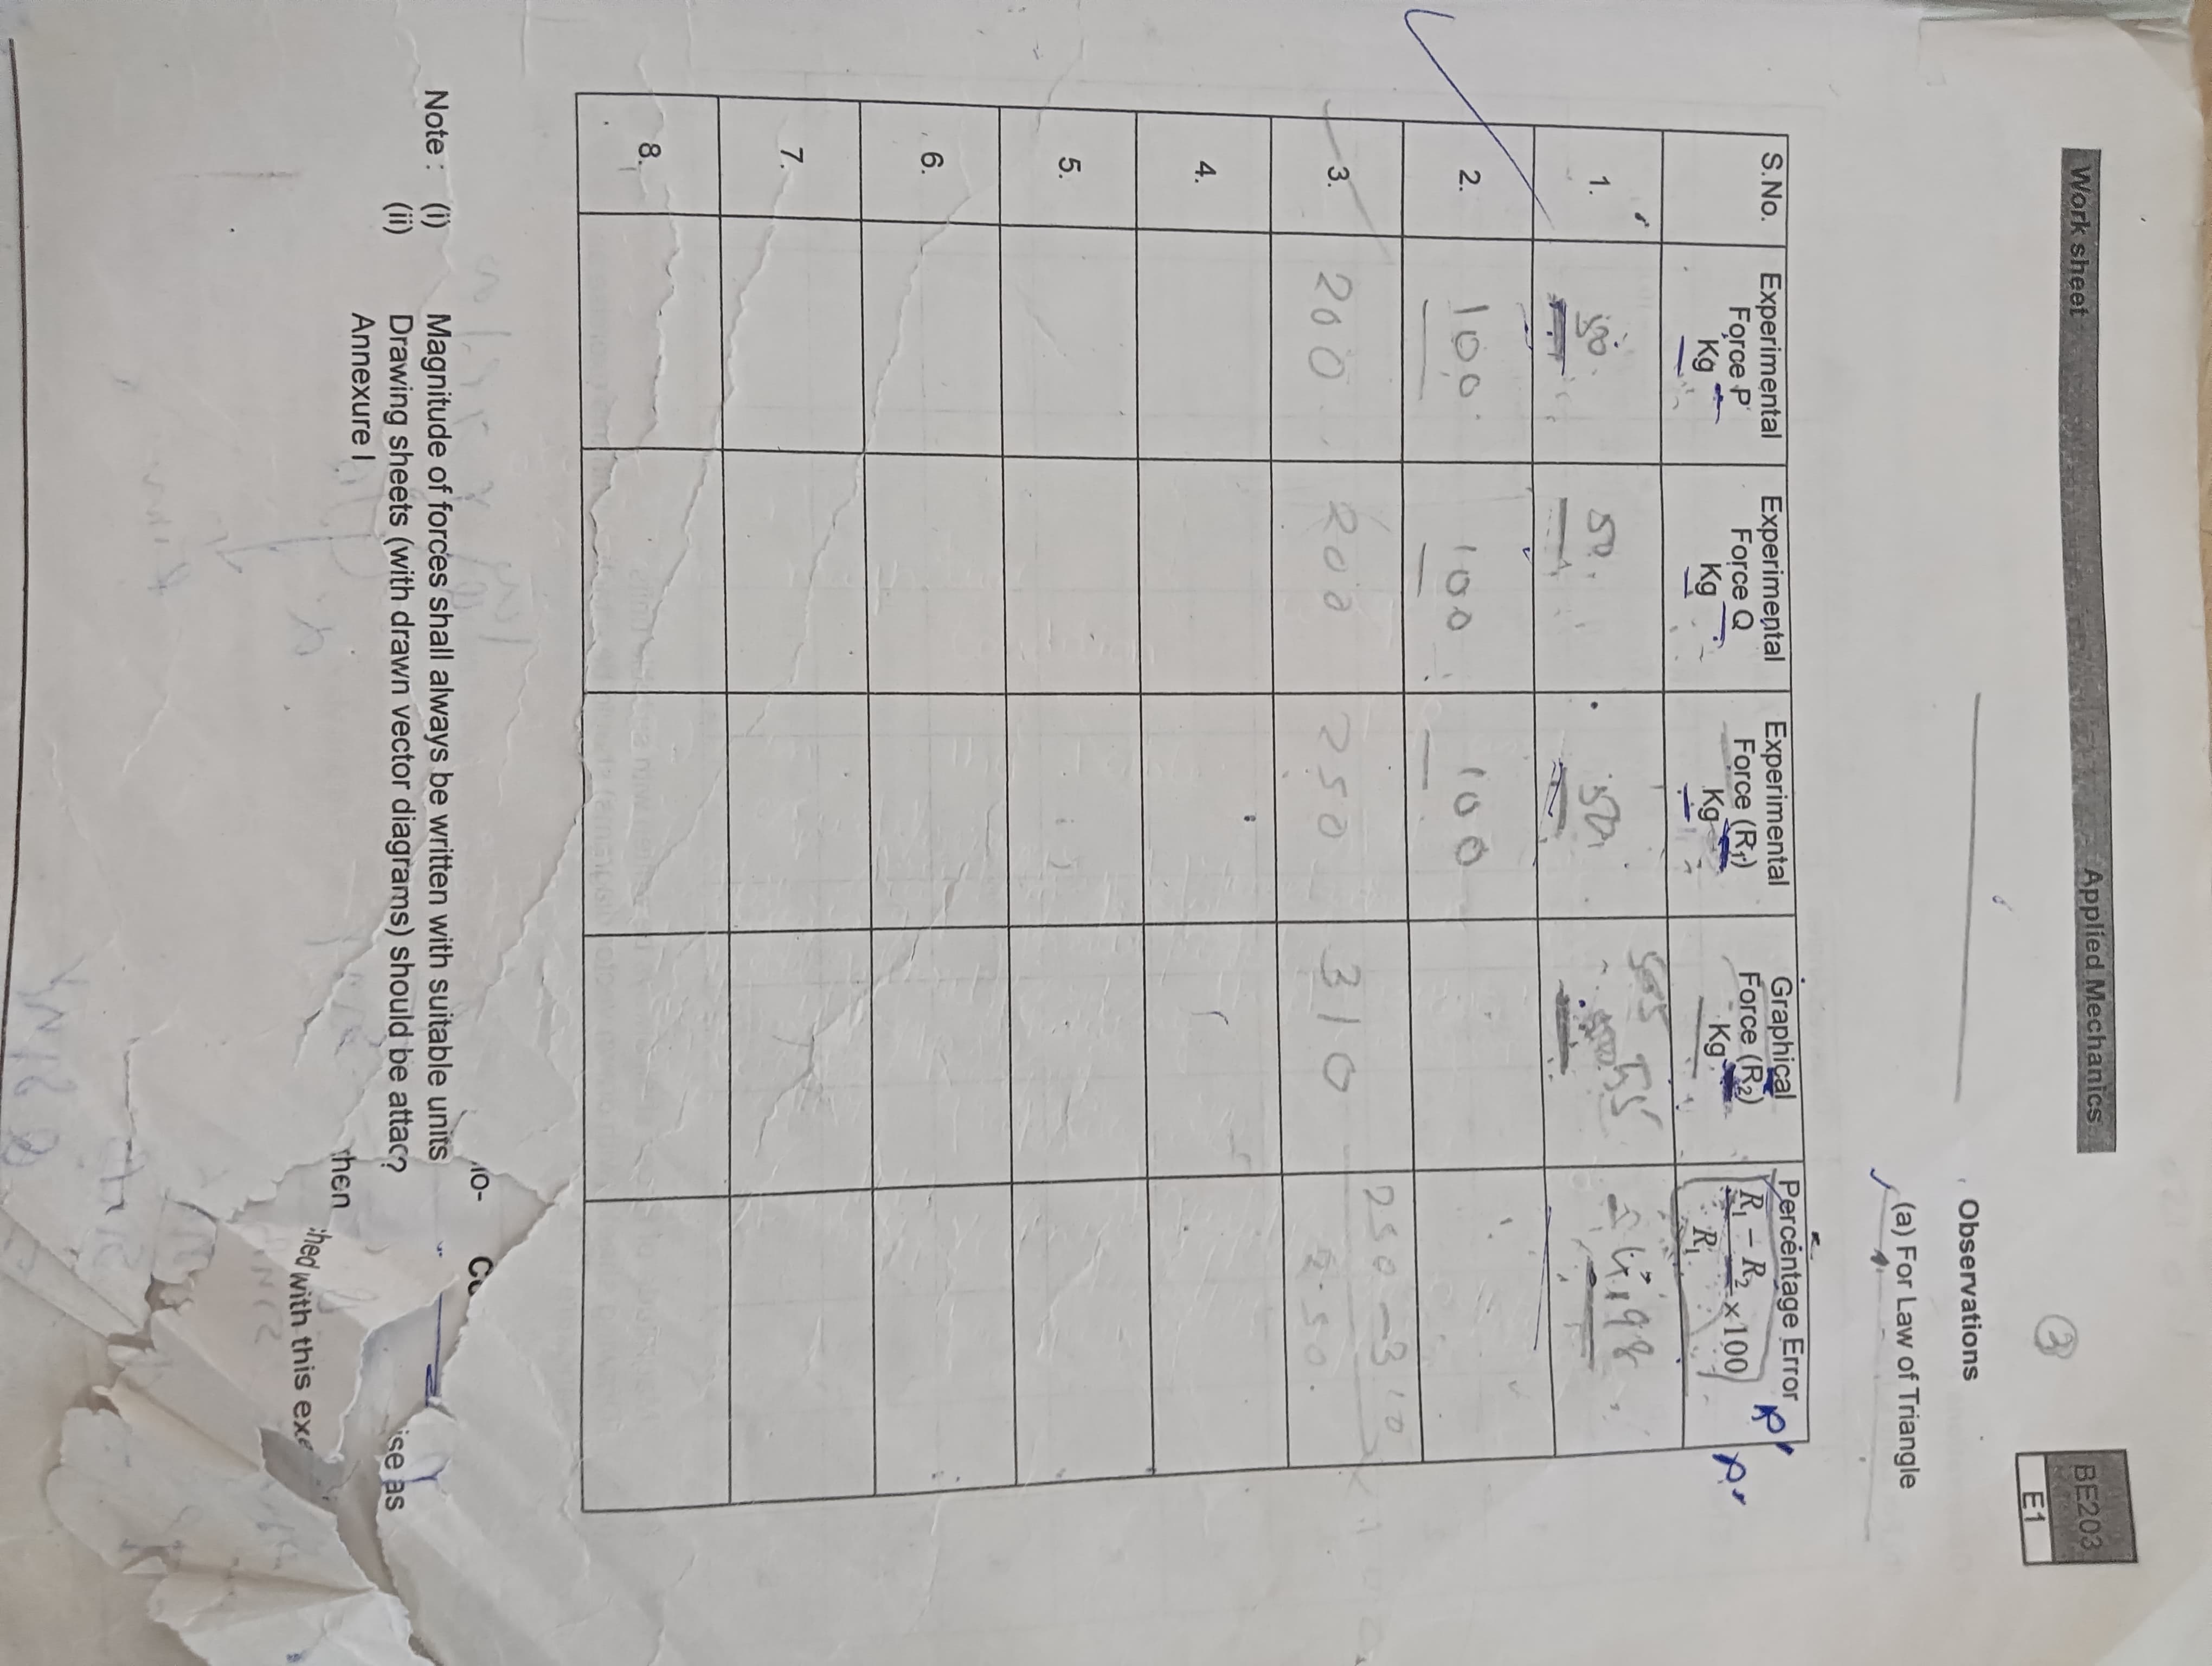 Work sheet Applied Mechanics
BE203
E1
3
Observations
(a) For Law of Triangle
S.No. Experimental Force P Kg Experimental Force Q Kg Experimental Force (R1) Kg Graphical Force (R2) Kg Percentage Error R1 − R2 / R1 ×100
1. 50 50 50 55 4.98
2. 100 100 100
3. 200 200 250 310 250 − 310 / 250
4.
5.
6.
7.
8.
Note : (i) Magnitude of forces shall always be written with suitable units
(ii) Drawing sheets (with drawn vector diagrams) should be attac
ise as
Annexure I
hen
hed with this exe